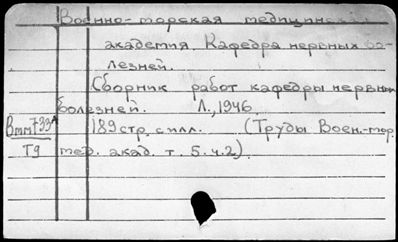 Военно-морская медицинская
академия. Кафедра нервных бо-
лезней.
Сборник работ кафедры нервных
болезней. Л., 1946.
Вmm733А 189 стр. с илл. (Труды Воен.-мор.
Т9 мед. акад. т. 5. ч. 2).